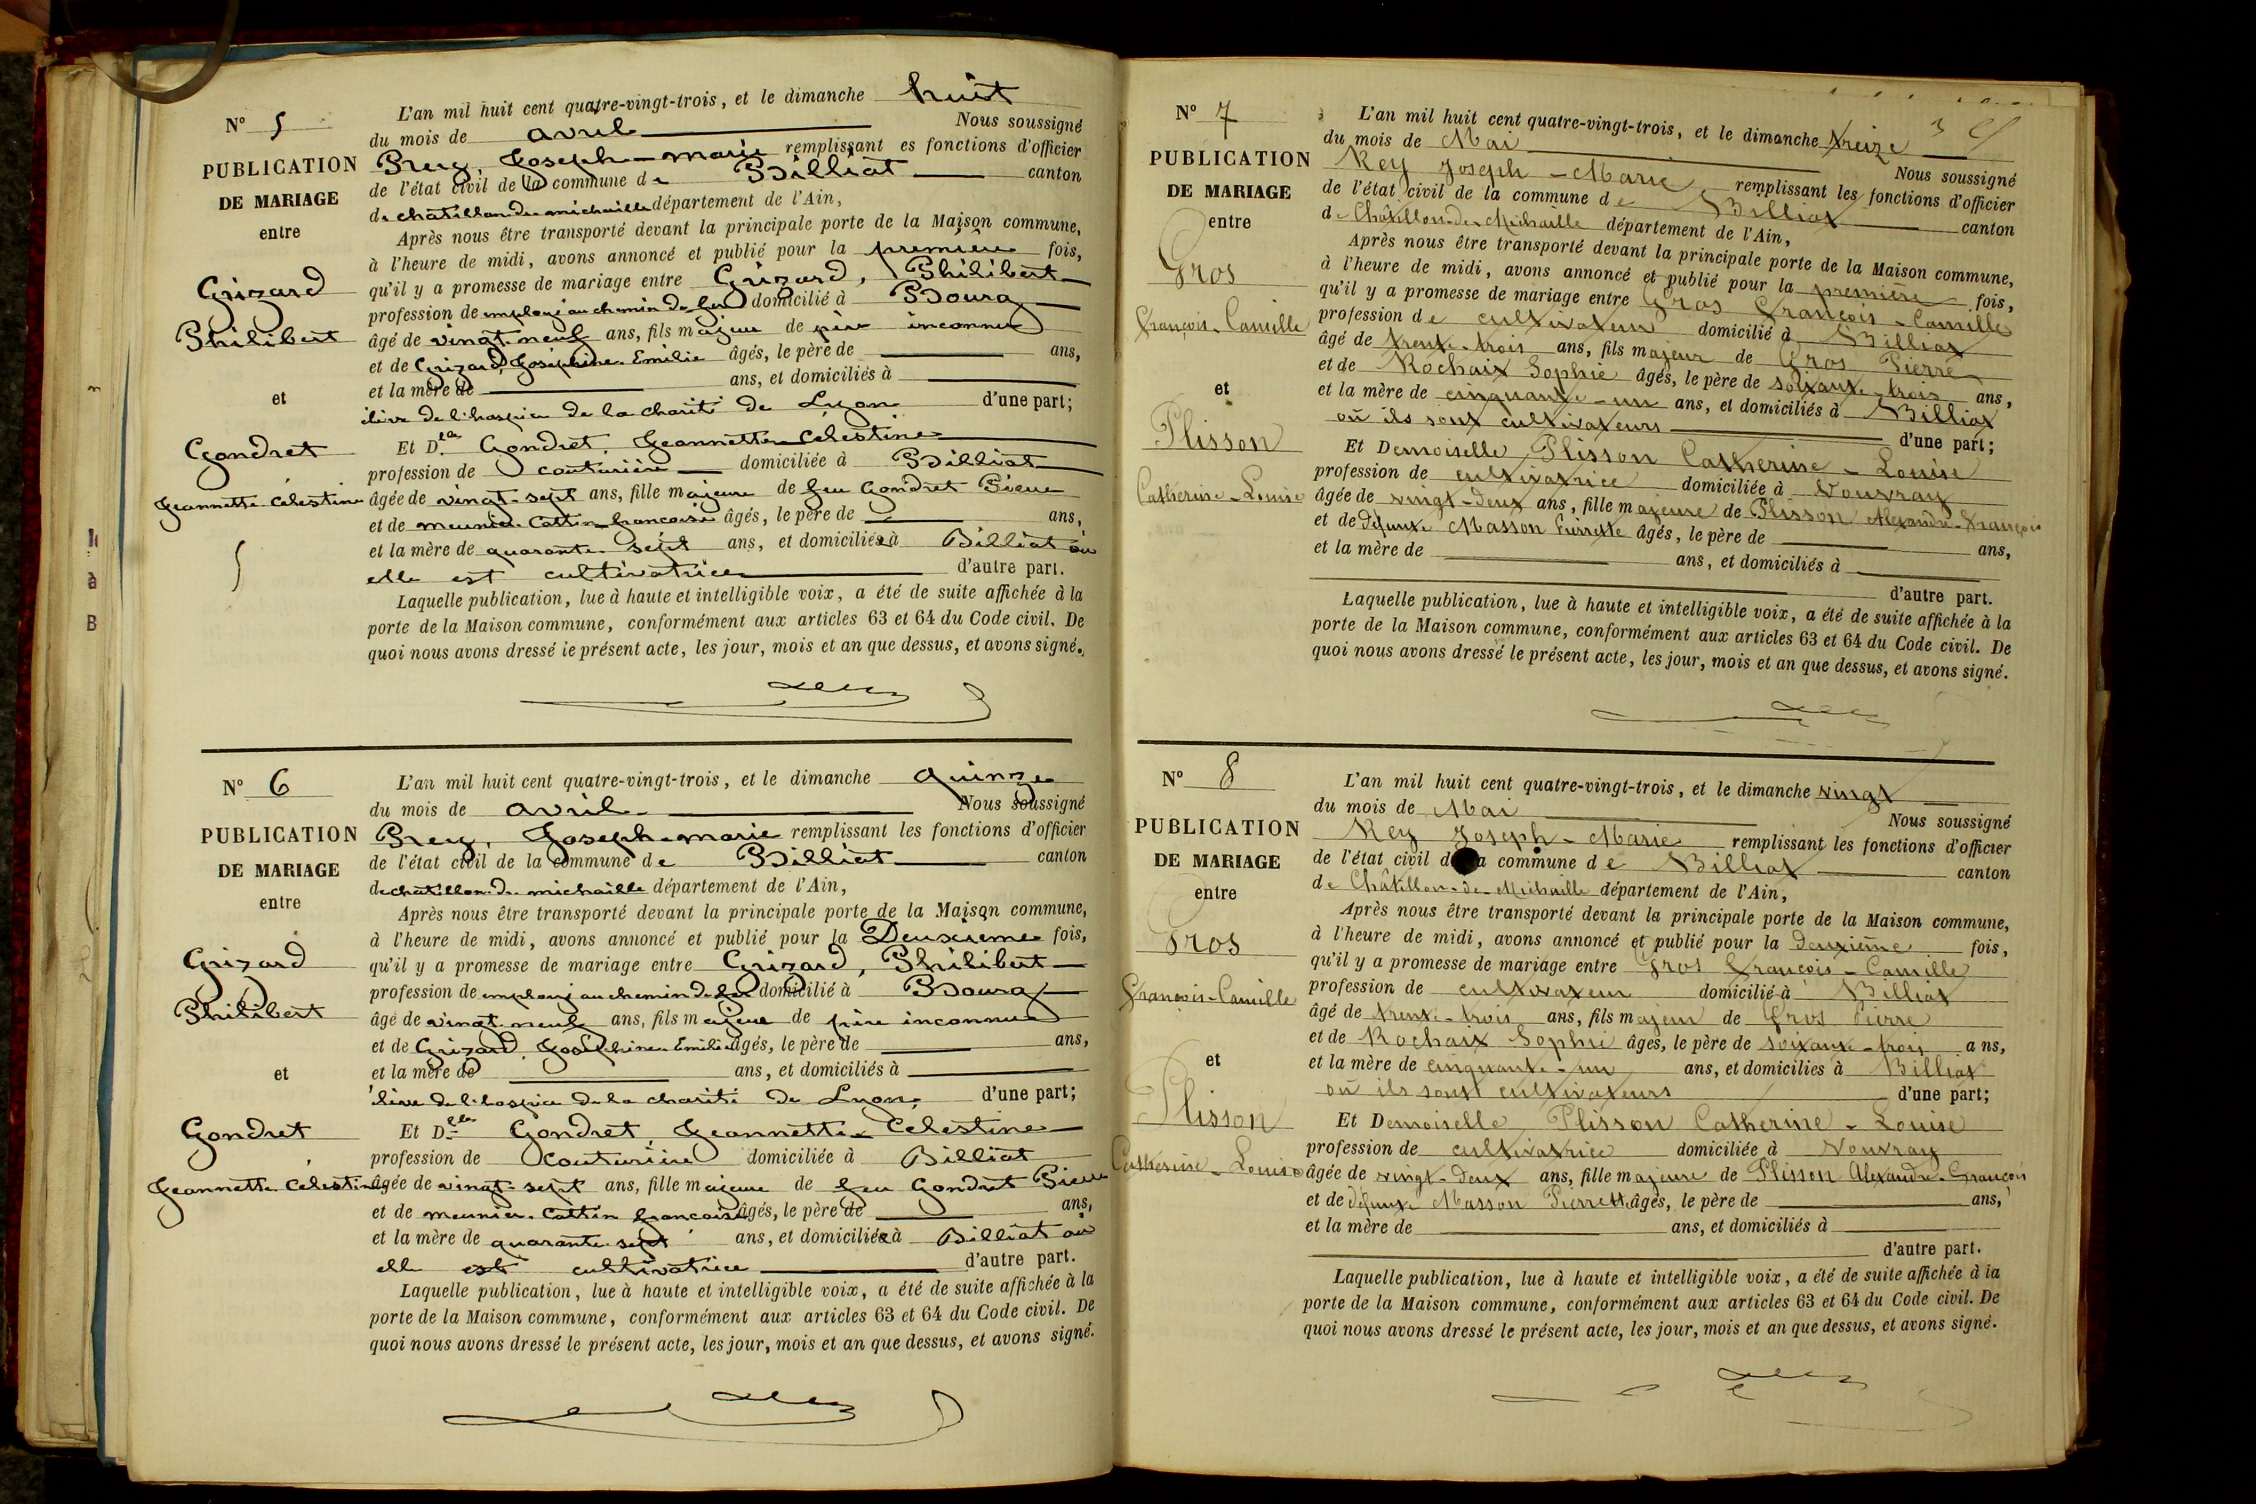 N° 5
PUBLICATION
DE MARIAGE
entre
Grizard
Philibert
et
Gondret
Jeannette Célestine
5
L'an mil huit cent quatre-vingt-trois, et le dimanche huit
du mois de avril Nous soussigné
Rey, Joseph-marie remplissant es fonctions d'officier
de l'état civil de la commune de Billiat canton
de chatillon-de-michaille département de l'Ain,
Après nous être transporté devant la principale porte de la Maison commune,
à l'heure de midi, avons annoncé et publié pour la première fois,
qu'il y a promesse de mariage entre Grizard, Philibert
profession de employé au chemin de fer domicilié à Bourg
âgé de vingt-neuf ans, fils majeur de père inconnu
et de Grizard, Joséphine Emilie âgés, le père de ans,
et la mère de ans, et domiciliés à
élève de l'hospice de la charité de Lyon d'une part;
Et Delle Gondret, Jeannette Célestine
profession de couturière domiciliée à Billiat
âgée de vingt-sept ans, fille majeure de feu Gondret Pierre
et de meunier-Cottin françoise âgés, le père de ans,
et la mère de quarante sept ans, et domiciliée à Billiat où
elle est cultivatrice d'autre part.
Laquelle publication, lue à haute et intelligible voix, a été de suite affichée à la
porte de la Maison commune, conformément aux articles 63 et 64 du Code civil. De
quoi nous avons dressé le présent acte, les jour, mois et an que dessus, et avons signé.
N° 6
PUBLICATION
DE MARIAGE
entre
Grizard
Philibert
et
Gondret
Jeannette Célestine
L'an mil huit cent quatre-vingt-trois, et le dimanche quinze
du mois de avril Nous soussigné
Rey, Joseph-marie remplissant les fonctions d'officier
de l'état civil de la commune de Billiat canton
de chatillon-de-michaille département de l'Ain,
Après nous être transporté devant la principale porte de la Maison commune,
à l'heure de midi, avons annoncé et publié pour la Deuxieme fois,
qu'il y a promesse de mariage entre Grizard, Philibert
profession de employé au chemin de fer domicilié à Bourg
âgé de vingt-neuf ans, fils majeur de père inconnu
et de Grizard, Joséphine Emilie âgés, le père de ans,
et la mère de ans, et domiciliés à
élève de l'hospice de la charité de Lyon, d'une part;
Et Delle Gondret, Jeannette Celestine
profession de Couturière domiciliée à Billiat
âgée de vingt-sept ans, fille majeure de feu Gondret Pierre
et de meunier-Cottin françoise âgés, le père de ans,
et la mère de quarante-sept ans, et domiciliée à Billiat où
elle est cultivatrice d'autre part.
Laquelle publication, lue à haute et intelligible voix, a été de suite affichée à la
porte de la Maison commune, conformément aux articles 63 et 64 du Code civil. De
quoi nous avons dressé le présent acte, les jour, mois et an que dessus, et avons signé.
N° 7
PUBLICATION
DE MARIAGE
entre
Gros
François-Camille
et
Plisson
Catherine-Louise
L'an mil huit cent quatre-vingt-trois, et le dimanche treize
du mois de Mai Nous soussigné
Rey Joseph-Marie remplissant les fonctions d'officier
de l'état civil de la commune de Billiat canton
de Châtillon-de-Michaille département de l'Ain,
Après nous être transporté devant la principale porte de la Maison commune,
à l'heure de midi, avons annoncé et publié pour la première fois,
qu'il y a promesse de mariage entre Gros François-Camille
profession de cultivateur domicilié à Billiat
âgé de trente-trois ans, fils majeur de Gros Pierre
et de Rochaix Sophie âgés, le père de soixante-trois ans,
et la mère de cinquante-un ans, et domiciliés à Billiat
où ils sont cultivateurs d'une part;
Et Demoiselle Plisson Catherine-Louise
profession de cultivatrice domiciliée à Vouvray
âgée de vingt-deux ans, fille majeure de Plisson Alexandre-François
et de défunte Masson Pierrette âgés, le père de ans,
et la mère de ans, et domiciliés à
d'autre part.
Laquelle publication, lue à haute et intelligible voix, a été de suite affichée à la
porte de la Maison commune, conformément aux articles 63 et 64 du Code civil. De
quoi nous avons dressé le présent acte, les jour, mois et an que dessus, et avons signé.
N° 8
PUBLICATION
DE MARIAGE
entre
Gros
François-Camille
et
Plisson
Catherine-Louise
L'an mil huit cent quatre-vingt-trois, et le dimanche vingt
du mois de Mai Nous soussigné
Rey Joseph-Marie remplissant les fonctions d'officier
de l'état civil de la commune de Billiat canton
de Châtillon-de-Michaille département de l'Ain,
Après nous être transporté devant la principale porte de la Maison commune,
à l'heure de midi, avons annoncé et publié pour la deuxième fois,
qu'il y a promesse de mariage entre Gros François-Camille
profession de cultivateur domicilié à Billiat
âgé de trente-trois ans, fils majeur de Gros Pierre
et de Rochaix Sophie âgés, le père de soixante-trois ans,
et la mère de cinquante-un ans, et domiciliés à Billiat
où ils sont cultivateurs d'une part;
Et Demoiselle Plisson Catherine-Louise
profession de cultivatrice domiciliée à Vouvray
âgée de vingt-deux ans, fille majeure de Plisson Alexandre-François
et de défunte Masson Pierrette âgés, le père de ans,
et la mère de ans, et domiciliés à
d'autre part.
Laquelle publication, lue à haute et intelligible voix, a été de suite affichée à la
porte de la Maison commune, conformément aux articles 63 et 64 du Code civil. De
quoi nous avons dressé le présent acte, les jour, mois et an que dessus, et avons signé.